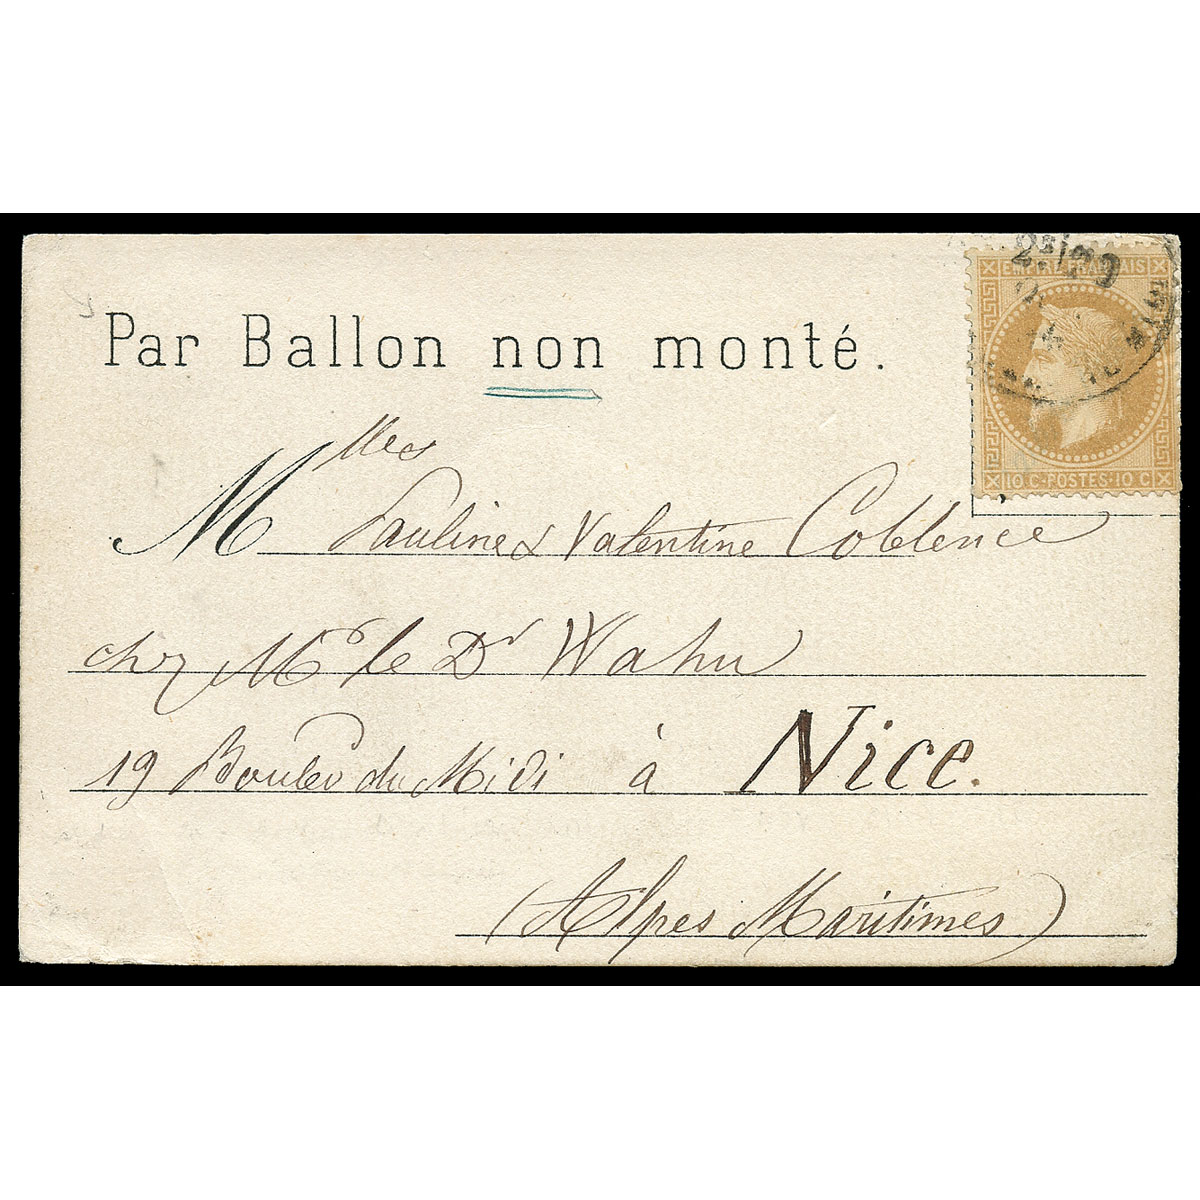 EMPIRE FRANÇAIS
10 C·POSTES·10 C
Par Ballon non monté.
Mlles Pauline & Valentine Coblence
chez Mr le Dr Wahu
19 Boulev du Midi à Nice.
(Alpes Maritimes)